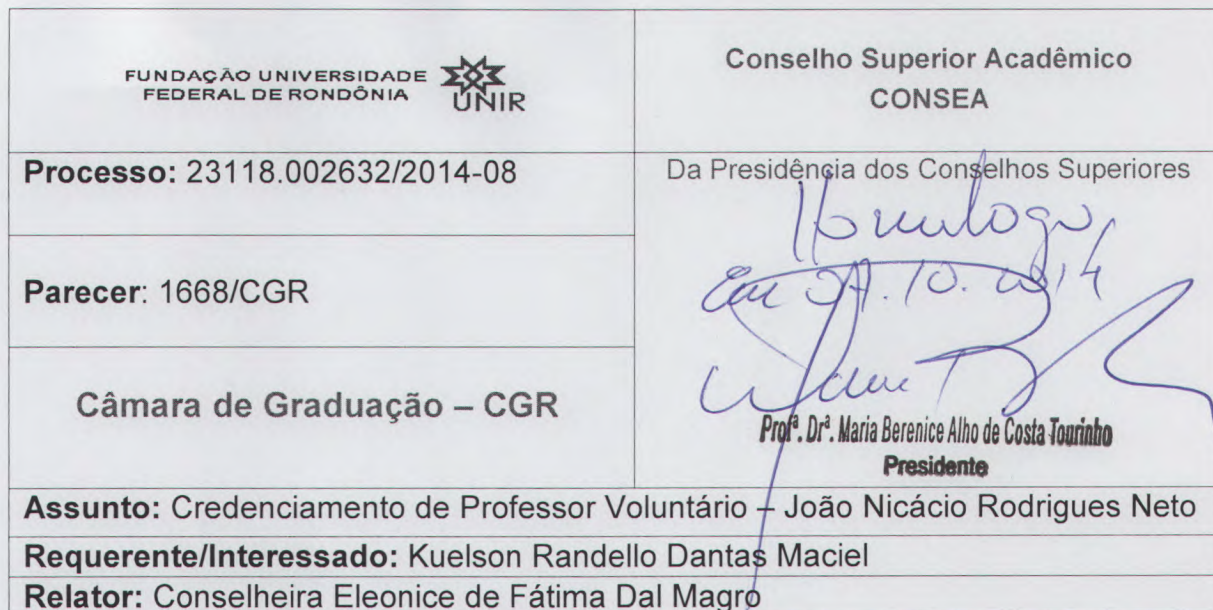 FUNDAÇÃO UNIVERSIDADE
FEDERAL DE RONDÔNIA
UNIR
Conselho Superior Acadêmico
CONSEA
Processo: 23118.002632/2014-08
Da Presidência dos Conselhos Superiores
Homologo,
Em 10. 2014
Parecer: 1668/CGR
Câmara de Graduação – CGR
Profª. Drª. Maria Berenice Alho de Costa Tourinho
Presidente
Assunto: Credenciamento de Professor Voluntário – João Nicácio Rodrigues Neto
Requerente/Interessado: Kuelson Randello Dantas Maciel
Relator: Conselheira Eleonice de Fátima Dal Magro